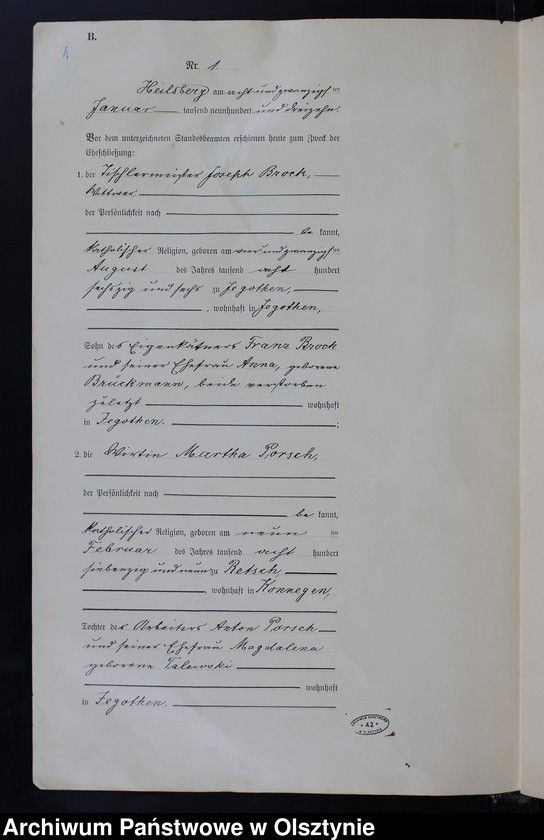 B.
1
Nr. 1.
Heilsberg am acht und zwanzigsten
Januar tausend neunhundert und dreizehn.
Vor dem unterzeichneten Standesbeamten erschienen heute zum Zweck der
Eheschließung:
1. der Tischlermeister Joseph Brock,
Wittwer,
der Persönlichkeit nach
be kannt,
katholischer Religion, geboren am vier und zwanzigsten
August des Jahres tausend acht hundert
sechszig und sechs zu Jegothen,
, wohnhaft in Jegothen,
Sohn des Eigenkätners Franz Brock
und seiner Ehefrau Anna, geborene
Brückmann, beide verstorben
zuletzt wohnhaft
in Jegothen. ;
2. die Wirtin Martha Porsch,
der Persönlichkeit nach
be kannt,
katholischer Religion, geboren am neun ten
Februar des Jahres tausend acht hundert
siebenzig und neun zu Retsch,
, wohnhaft in Konnegen,
Tochter des Arbeiters Anton Porsch
und seiner Ehefrau Magdalena
geborene Talewski
wohnhaft
in Jegothen.
ARCHIWUM PAŃSTWOWE
* 42 *
W OLSZTYNIE
Archiwum Państwowe w Olsztynie